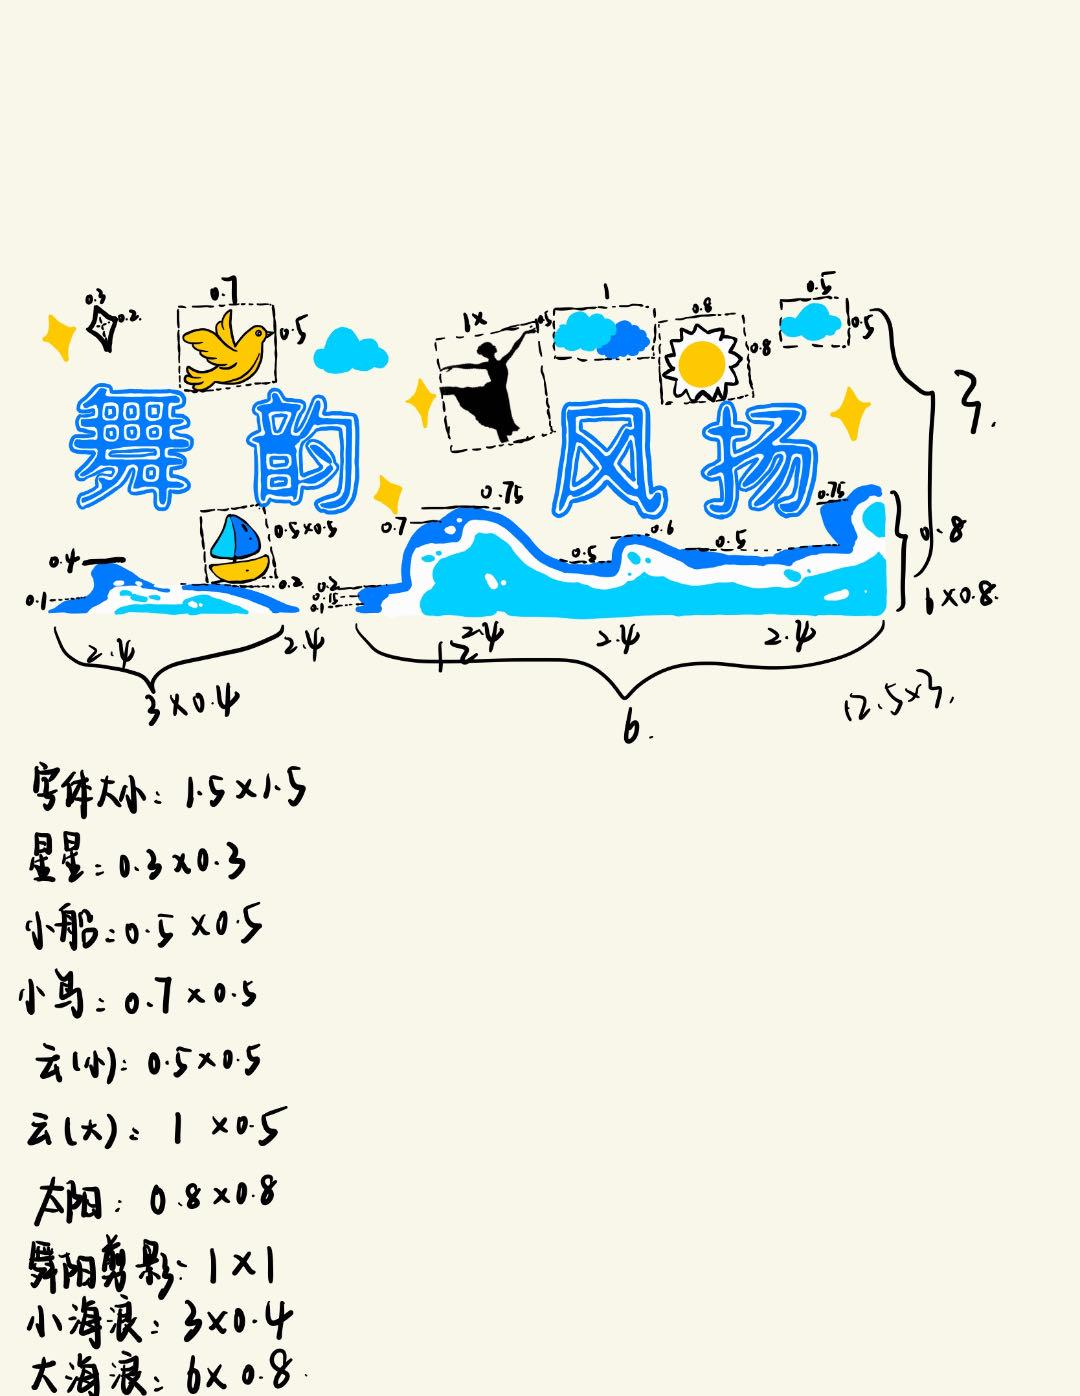 0.3
0.2
0.7
0.5
1×
0.5
1
0.8
0.8
0.5
0.5
3.
舞 韵 风 扬
0.75
0.75
0.7
0.5×0.5
0.6
0.5
0.5
0.8
0.4
0.2
0.2
0.15
0.1
0.1
6×0.8.
2.4
2.4
2.4
2.4
2.4
12
3×0.4
6.
12.5×3.
字体大小: 1.5×1.5
星星: 0.3×0.3
小船: 0.5×0.5
小鸟: 0.7×0.5
云(小): 0.5×0.5
云(大): 1×0.5
太阳: 0.8×0.8
舞阳剪影: 1×1
小海浪: 3×0.4
大海浪: 6×0.8.